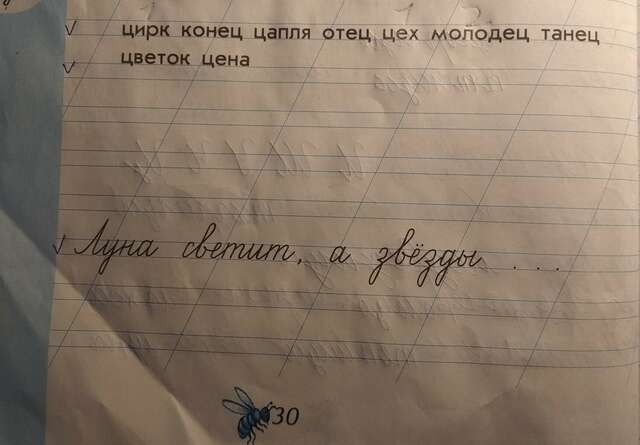 цирк конец цапля отец цех молодец танец
цветок цена
Луна светит, а звёзды ...
30